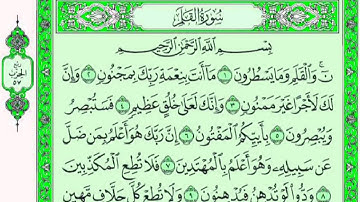 سُورَةُ القَلَمِ
بِسْمِ اللَّهِ الرَّحْمَٰنِ الرَّحِيمِ
نٓ ۚ وَالْقَلَمِ وَمَا يَسْطُرُونَ ١ مَا أَنتَ بِنِعْمَةِ رَبِّكَ بِمَجْنُونٍ ٢ وَإِنَّ
لَكَ لَأَجْرًا غَيْرَ مَمْنُونٍ ٣ وَإِنَّكَ لَعَلَىٰ خُلُقٍ عَظِيمٍ ٤ فَسَتُبْصِرُ
وَيُبْصِرُونَ ٥ بِأَييِّكُمُ الْمَفْتُونُ ٦ إِنَّ رَبَّكَ هُوَ أَعْلَمُ بِمَن ضَلَّ
عَن سَبِيلِهِ وَهُوَ أَعْلَمُ بِالْمُهْتَدِينَ ٧ فَلَا تُطِعِ الْمُكَذِّبِينَ
٨ وَدُّوا لَوْ تُدْهِنُ فَيُدْهِنُونَ ٩ وَلَا تُطِعْ كُلَّ حَلَّافٍ مَّهِينٍ
الحزب
٥٧